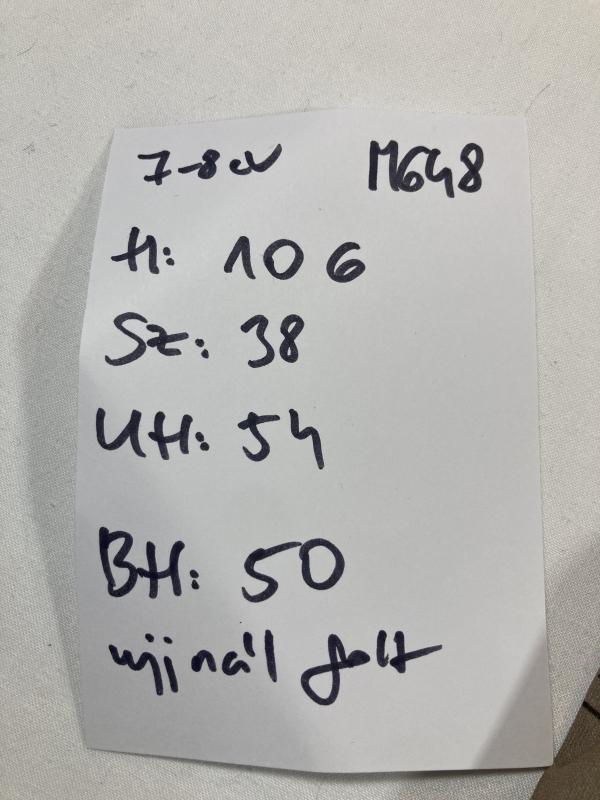 7-8 év M648
H: 106
Sz: 38
UH: 54
BH: 50
ujjnál folt